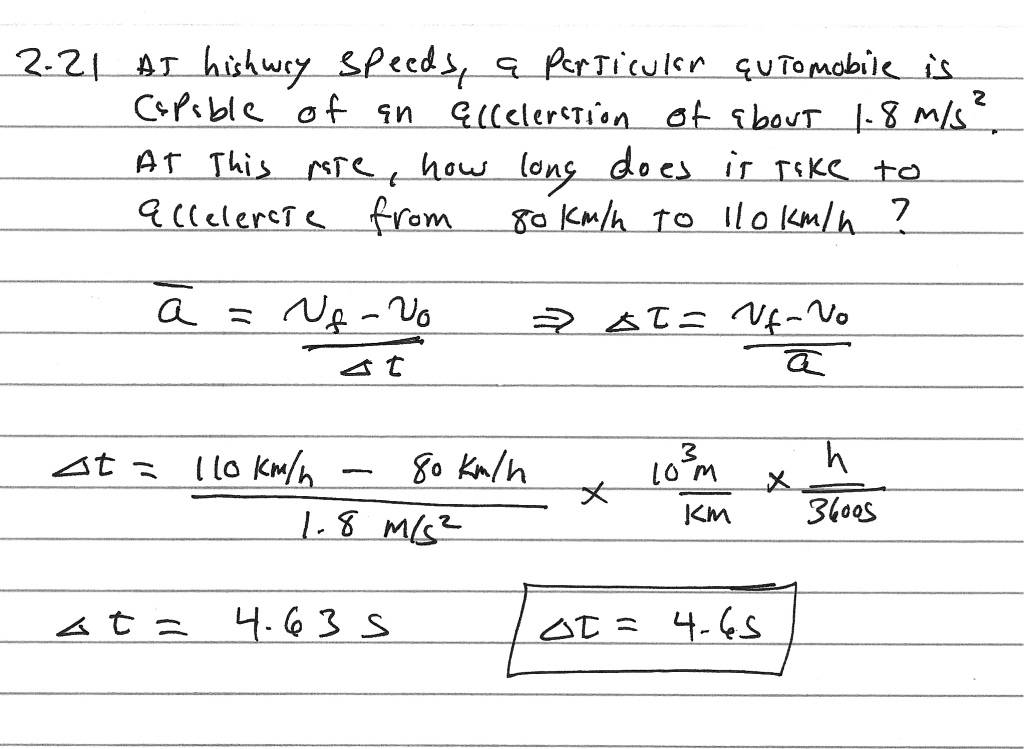 2.21 At highway speeds, a particular automobile is
capable of an acceleration of about 1.8 m/s².
At this rate, how long does it take to
accelerate from 80 km/h to 110 km/h ?
a̅ = (v_f - v_0) / Δt ⇒ Δt = (v_f - v_0) / a̅
Δt = (110 km/h - 80 km/h) / (1.8 m/s²) × 10³m / km × h / 3600s
Δt = 4.63 s Δt = 4.6s